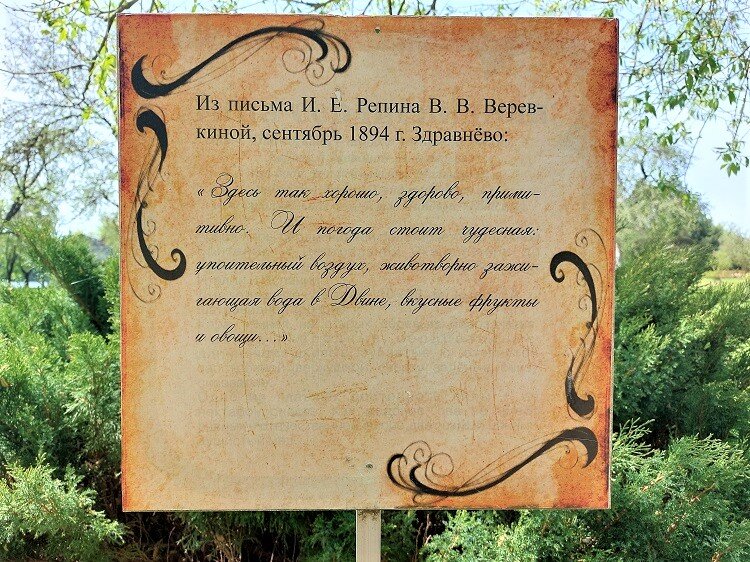 Из письма И. Е. Репина В. В. Верев-
киной, сентябрь 1894 г. Здравнёво:
«Здесь так хорошо, здорово, прими-
тивно. И погода стоит чудесная:
упоительный воздух, животворно зажи-
гающая вода в Двине, вкусные фрукты
и овощи...»